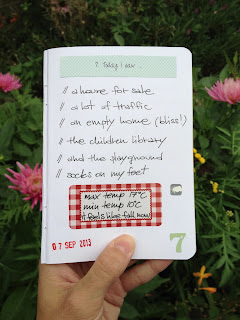 ? Today I saw ..
// a house for sale
// a lot of traffic
// an empty home (bliss!)
// the children library
// and the playground
// socks on my feet
max temp 17°C
min temp 10°C
it feels like fall now
07 SEP 2013
7